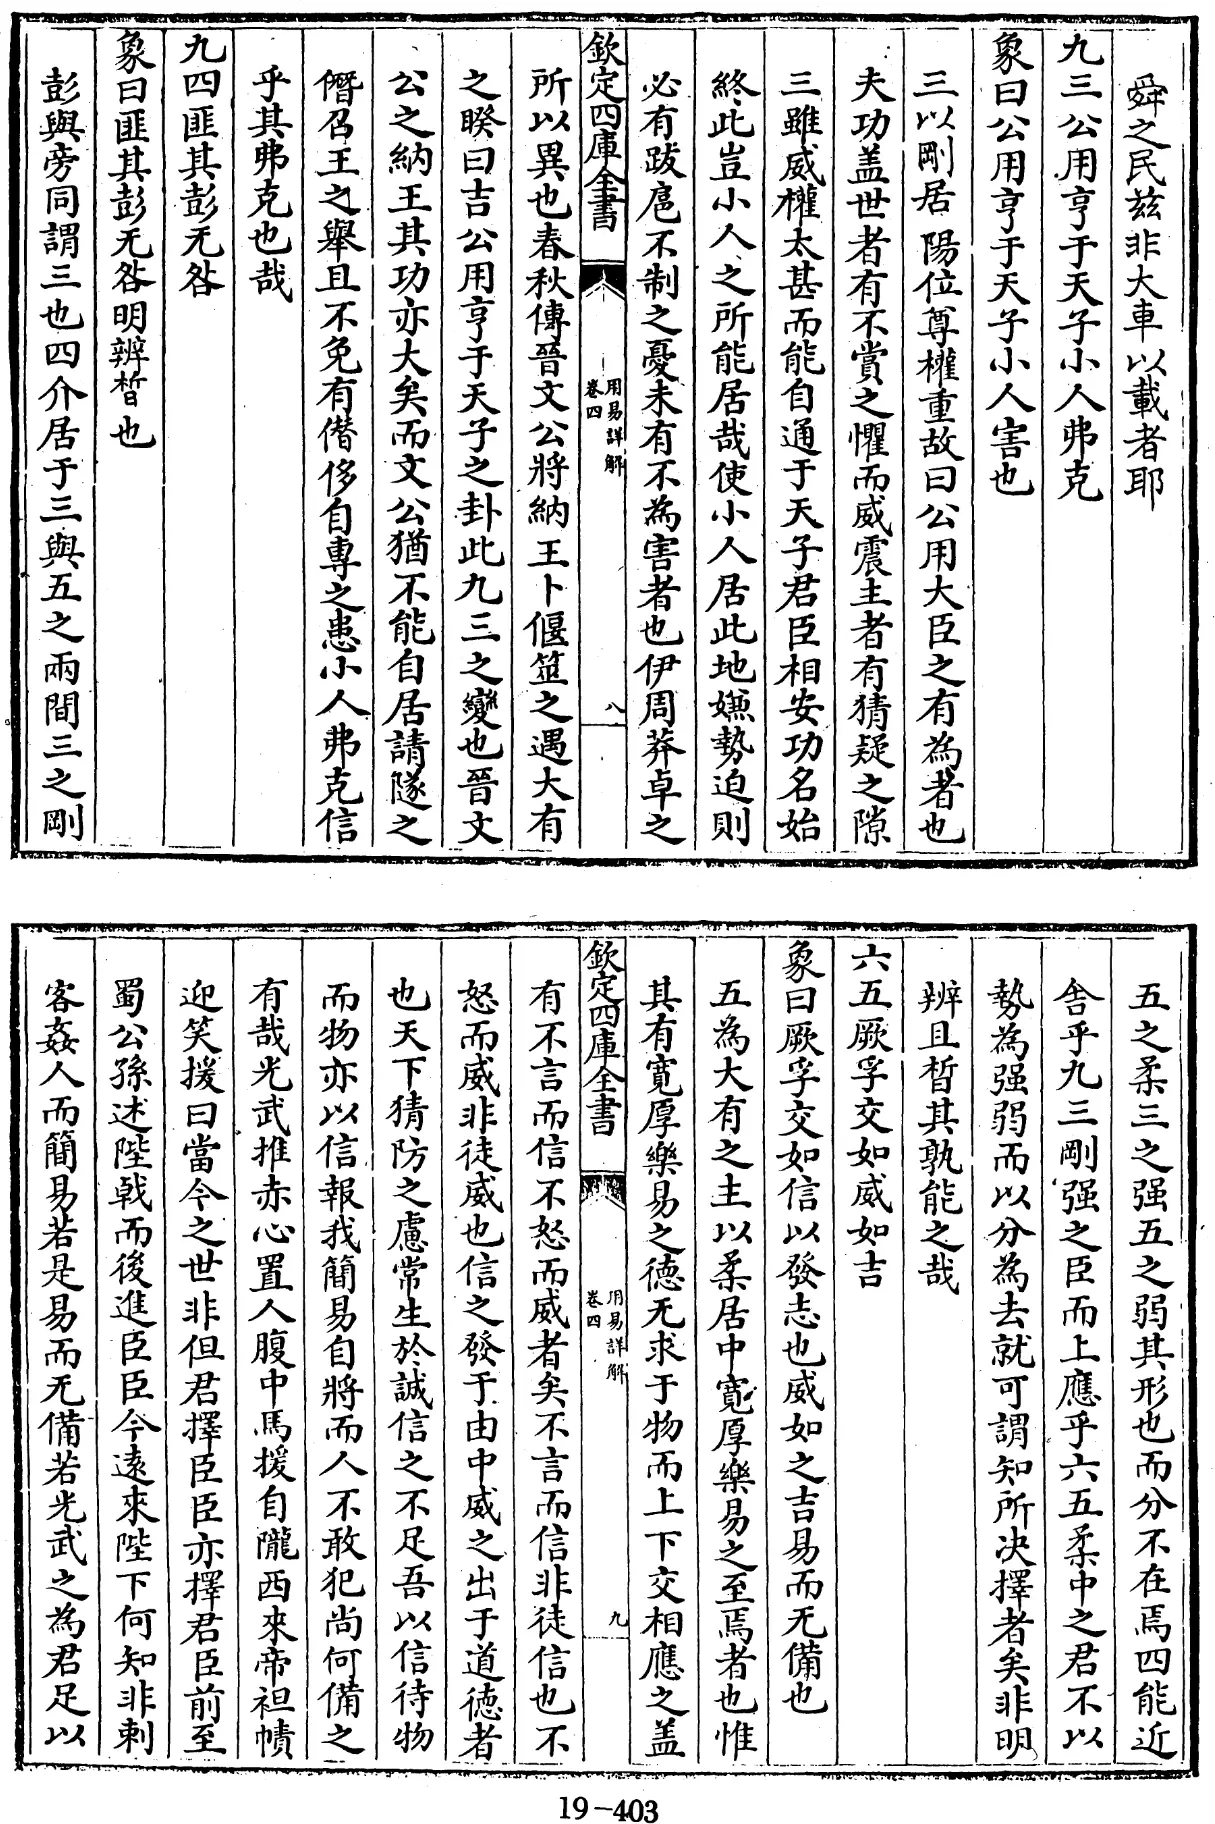 舜之民兹非大車以載者耶
九三公用亨于天子小人弗克
象曰公用亨于天子小人害也
三以剛居陽位尊權重故曰公用大臣之有為者也
夫功盖世者有不賞之懼而威震主者有猜疑之隙
三雖威權太甚而能自通于天子君臣相安功名始
終此豈小人之所能居哉使小人居此地嫌勢迫則
必有跋扈不制之憂未有不為害者也伊周莽卓之
欽定四庫全書
用易詳解
卷四
八
所以異也春秋傳晉文公將納王卜偃筮之遇大有
之睽曰吉公用亨于天子之卦此九三之變也晉文
公之納王其功亦大矣而文公猶不能自居請隧之
僭召王之舉且不免有僭侈自專之患小人弗克信
乎其弗克也哉
九四匪其彭无咎
象曰匪其彭无咎明辨晳也
彭與旁同謂三也四介居于三與五之兩間三之剛
五之柔三之强五之弱其形也而分不在焉四能近
舍乎九三剛强之臣而上應乎六五柔中之君不以
勢為强弱而以分為去就可謂知所决擇者矣非明
辨且晳其孰能之哉
六五厥孚交如威如吉
象曰厥孚交如信以發志也威如之吉易而无備也
五為大有之主以柔居中寛厚樂易之至焉者也惟
其有寛厚樂易之德无求于物而上下交相應之盖
欽定四庫全書
用易詳解
卷四
九
有不言而信不怒而威者矣不言而信非徒信也不
怒而威非徒威也信之發于由中威之出于道德者
也天下猜防之慮常生於誠信之不足吾以信待物
而物亦以信報我簡易自將而人不敢犯尚何備之
有哉光武推赤心置人腹中馬援自隴西來帝袒幘
迎笑援曰當今之世非但君擇臣臣亦擇君臣前至
蜀公孫述陛戟而後進臣臣今遠來陛下何知非刺
客姦人而簡易若是易而无備若光武之為君足以
19-403